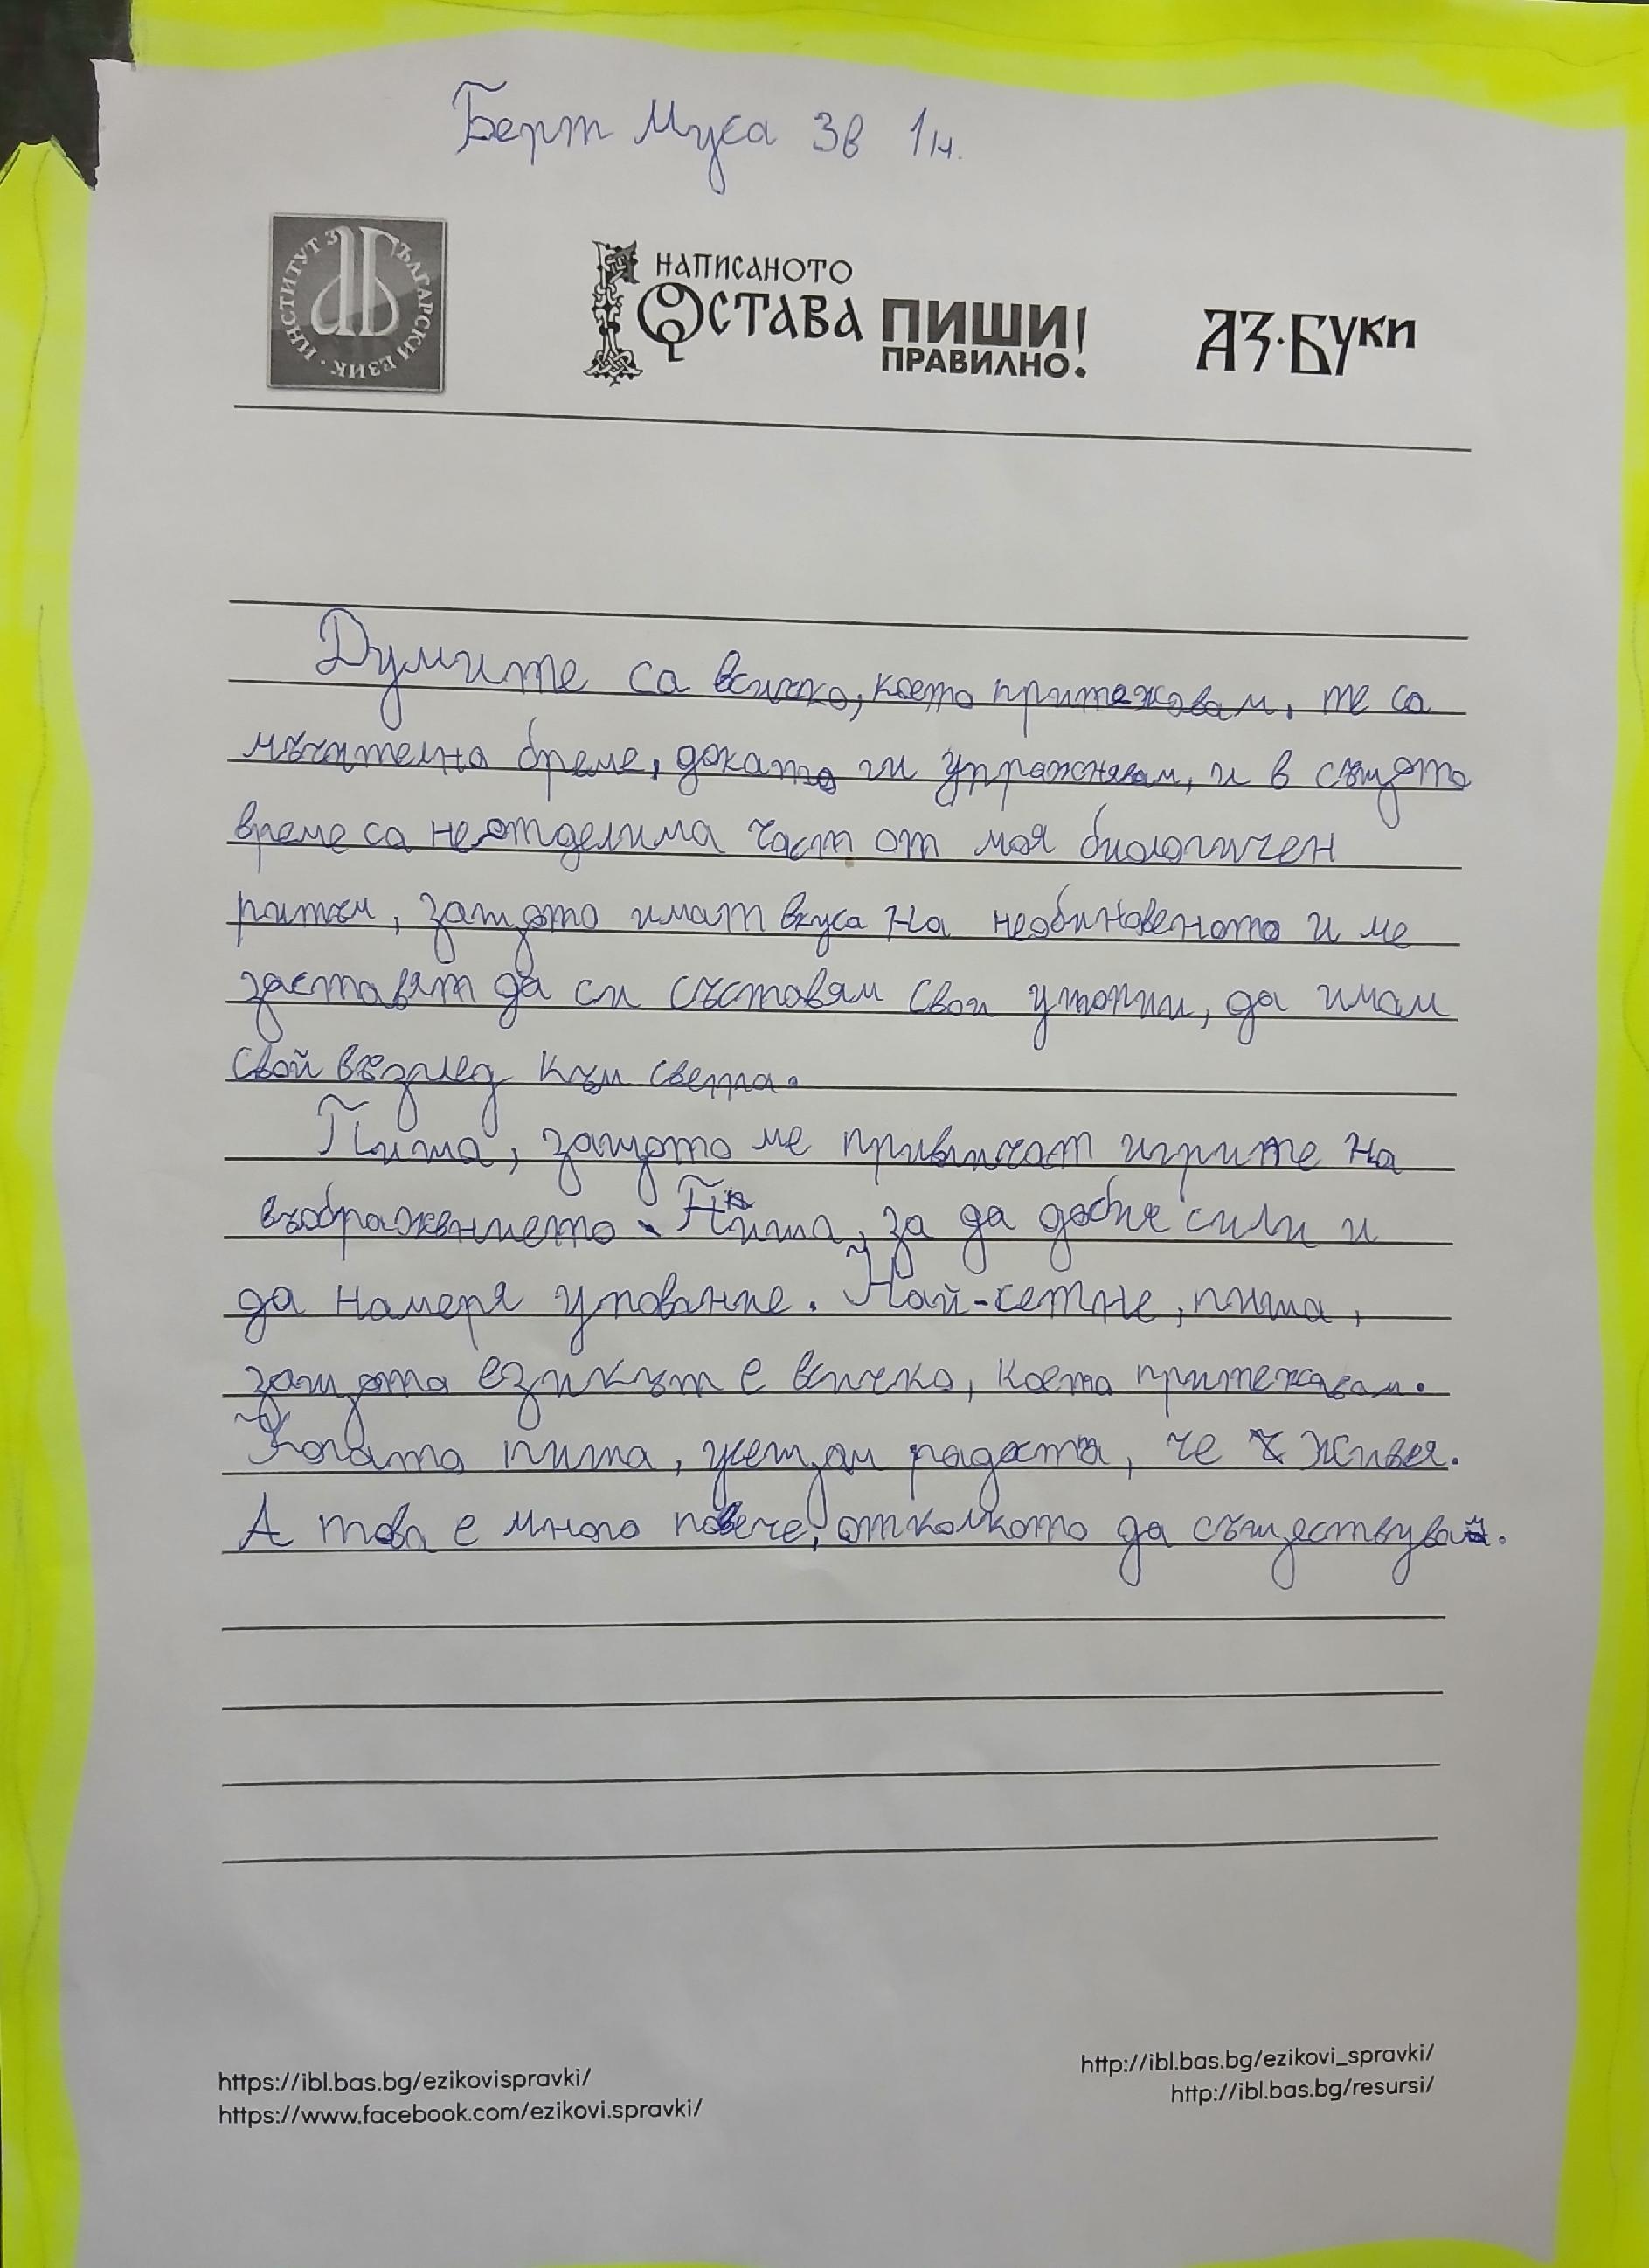 Берт Муса 3в 1н.
ИНСТИТУТ ЗА БЪЛГАРСКИ ЕЗИК
НАПИСАНОТО
ОСТАВА ПИШИ!
ПРАВИЛНО.
АЗ·БУКИ
Думите са всичко, което притежавам. те са
мъчително бреме, докато ги упражнявам, и в същото
време са неотделима част от моя биологичен
ритъм, защото имат вкуса на необикновеното и ме
заставят да си съставям свои утопии, да имам
свой възглед към света.
Пиша, защото ме привличат игрите на
въображението. Пиша, за да добия сили и
да намеря упование. Най-сетне, пиша,
защото езикът е всичко, което притежавам.
Когато пиша, усещам радостта, че живея.
А това е много повече, отколкото да съществувам.
https://ibl.bas.bg/ezikovispravki/
https://www.facebook.com/ezikovi.spravki/
http://ibl.bas.bg/ezikovi_spravki/
http://ibl.bas.bg/resursi/